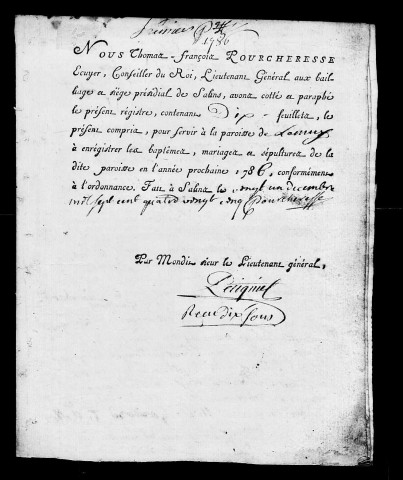 1786
NOUS Thomas-François POURCHERESSE
Ecuyer, Conseiller du Roi, Lieutenant Général aux bail-
liage & siége présidial de Salins, avons cotté & paraphé
le présent régistre, contenant Dix feuillets, le
présent compris, pour servir à la paroisse de
à enrégistrer les baptêmes, mariages & sépultures de la
dite paroisse en l'année prochaine 1786, conformément
à l'ordonnance. Fait à Salins le vingt un decembre
mil sept cent quatre vingt cinq Pourcheresse
Par Mondit sieur le Lieutenant général,
Reçu dix sous